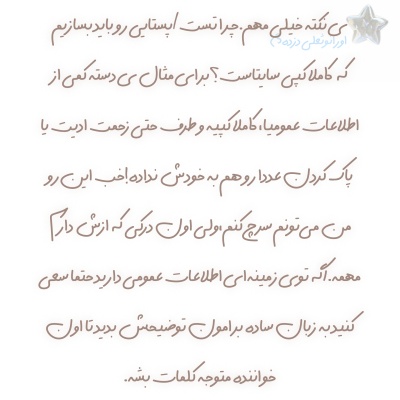 ی نکته خیلی مهم. چرا تست / پستایی رو باید بسازیم
که کاملا کپی سایتاست؟ برای مثال ی دسته کمی از
اطلاعات عمومیا، کاملا کپیه و طرف حتی زحمت ادیت یا
پاک کردن عددا رو هم به خودش نداده! خب این رو
من می‌تونم سرچ کنم ولی اون درکی که ازش دارم
مهمه. اگه توی زمینه‌ای اطلاعات عمومی دارید حتما سعی
کنید به زبان ساده برامون توضیحش بدید تا اون
خواننده متوجه کلمات بشه.